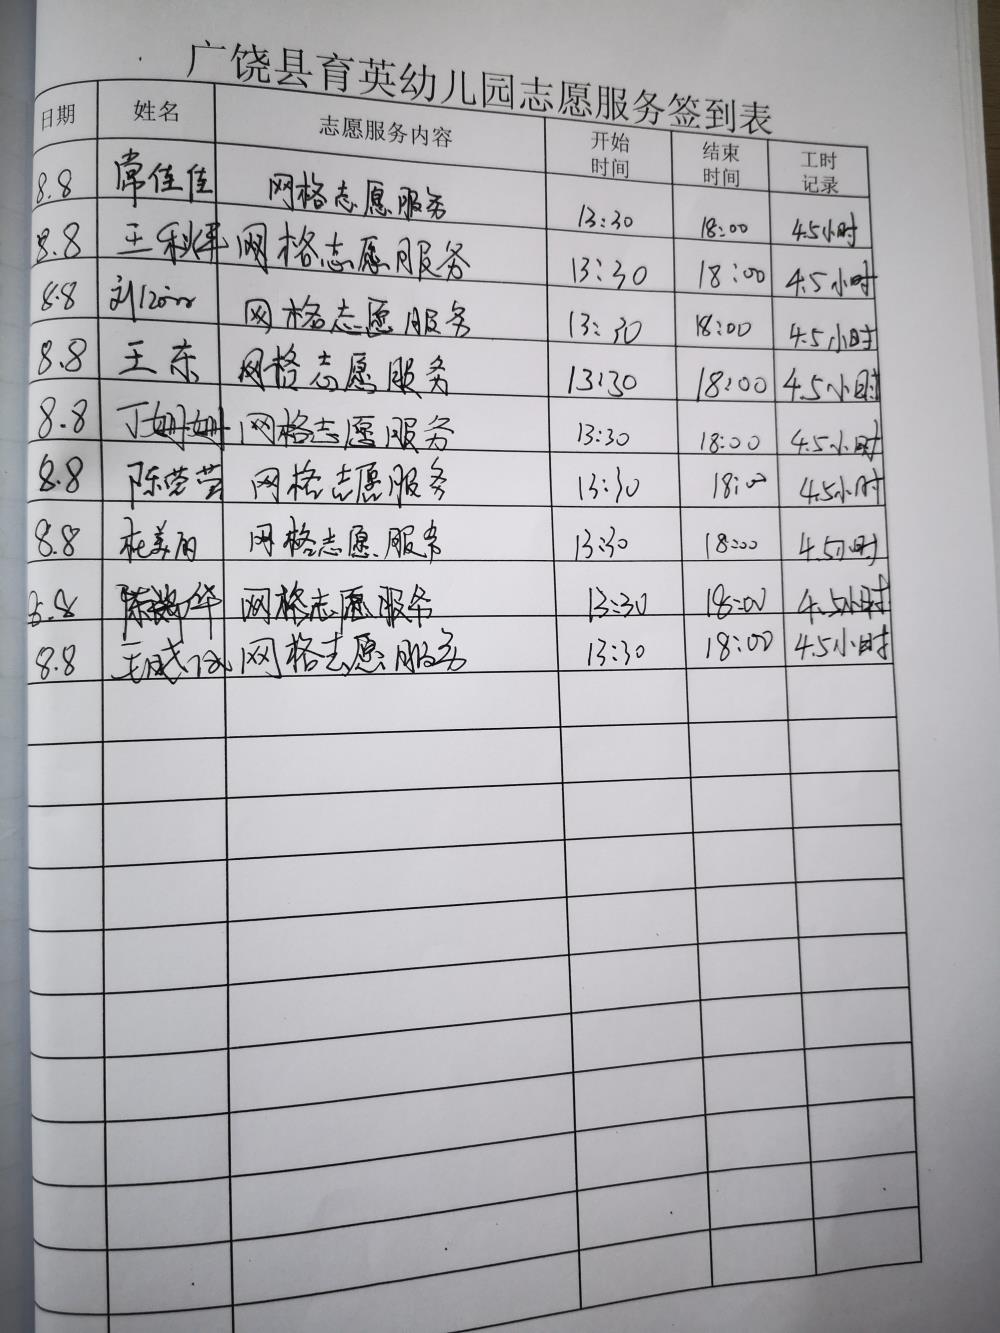 广饶县育英幼儿园志愿服务签到表
日期 姓名 志愿服务内容 开始时间 结束时间 工时记录
8.8 常佳佳 网格志愿服务 13:30 18:00 4.5小时
8.8 王秋 网格志愿服务 13:30 18:00 4.5小时
8.8 刘 网格志愿服务 13:30 18:00 4.5小时
8.8 王东 网格志愿服务 13:30 18:00 4.5小时
8.8 丁姗姗 网格志愿服务 13:30 18:00 4.5小时
8.8 陈莹莹 网格志愿服务 13:30 18:00 4.5小时
8.8 杜美丽 网格志愿服务 13:30 18:00 4.5小时
8.8 陈华 网格志愿服务 13:30 18:00 4.5小时
8.8 王成 网格志愿服务 13:30 18:00 4.5小时